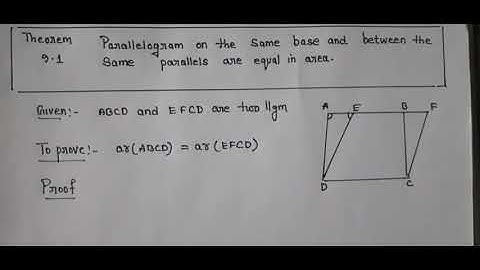 Theorem 9.1 Parallelogram on the same base and between the
same parallels are equal in area.
Given:- ABCD and EFCD are two ||gm
To prove:- ar(ABCD) = ar(EFCD)
Proof
A E B F
D C